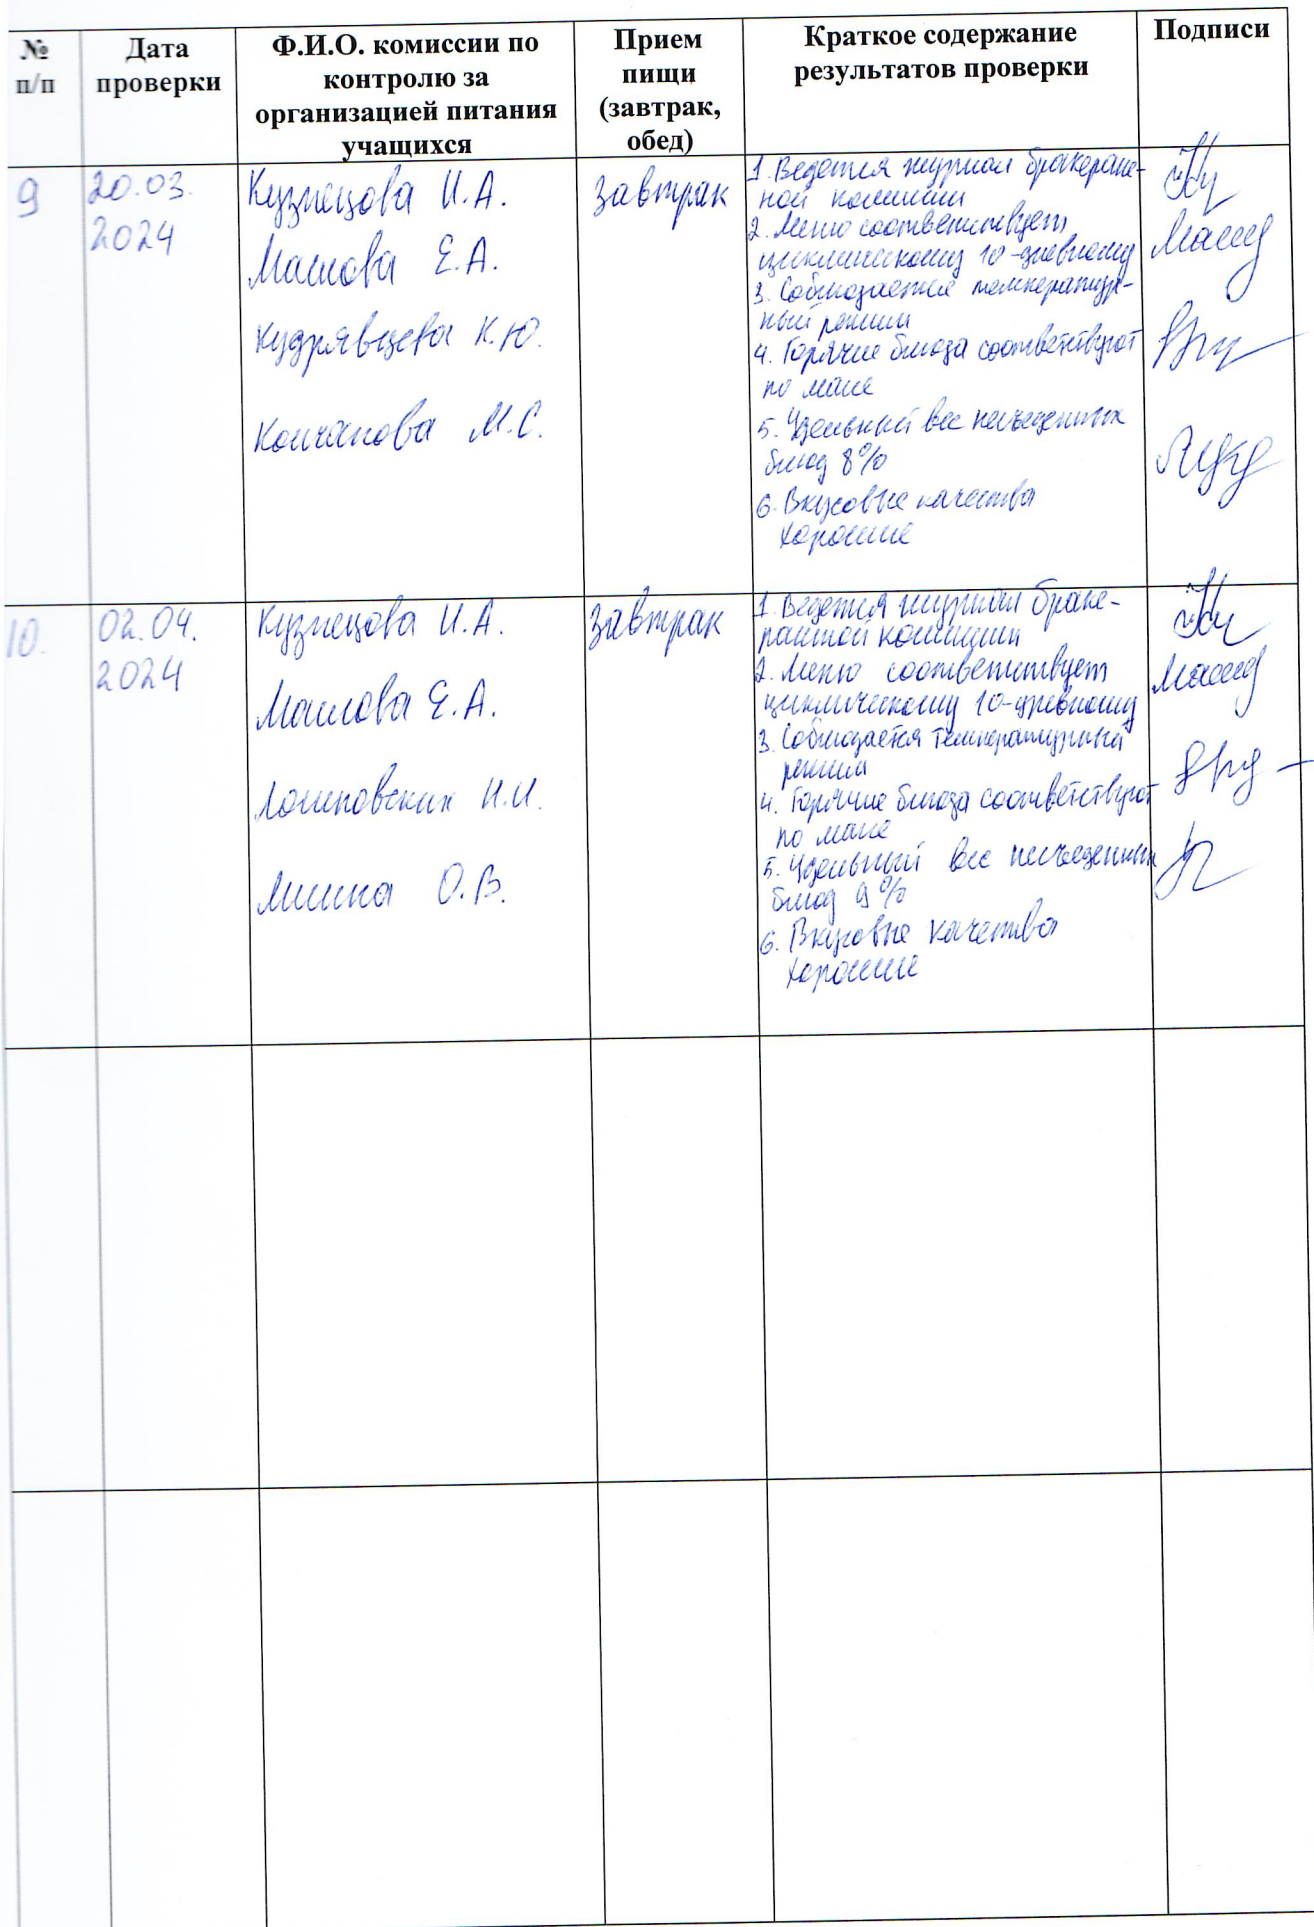 № п/п
Дата проверки
Ф.И.О. комиссии по контролю за организацией питания учащихся
Прием пищи (завтрак, обед)
Краткое содержание результатов проверки
Подписи
9
20.03.
2024
Кузнецова И.А.
Маслова Е.А.
Кудрявцева К.Ю.
Колчанова М.С.
завтрак
1. Ведется журнал бракераж-
ной комиссии
2. Меню соответствует
циклическому 10-дневному
3. Соблюдается температур-
ный режим
4. Горячие блюда соответствуют
по массе
5. Удельный вес несъеденных
блюд 8%
6. Вкусовые качества
хорошие
10.
02.04.
2024
Кузнецова И.А.
Маслова Е.А.
И.И.
О.В.
завтрак
1. Ведется журнал браке-
ражной комиссии
2. Меню соответствует
циклическому 10-дневному
3. Соблюдается температурный
режим
4. Горячие блюда соответствуют
по массе
5. Удельный вес несъеденных
блюд 9%
6. Вкусовые качества
хорошие